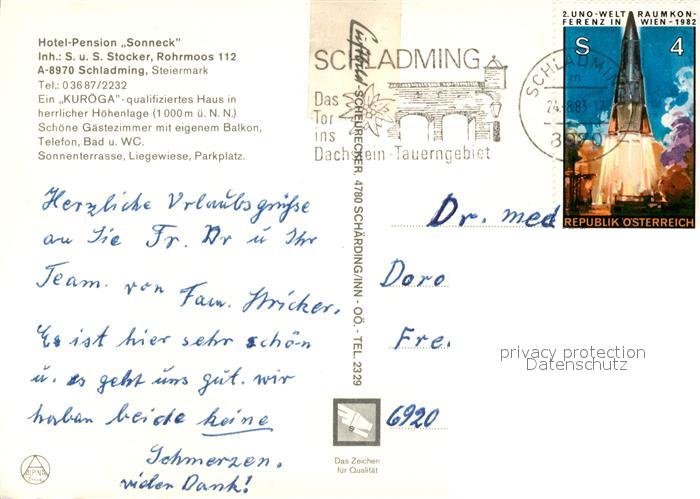 Hotel-Pension „Sonneck”
Inh.: S. u. S. Stocker, Rohrmoos 112
A-8970 Schladming, Steiermark
Tel.: 03687/2232
Ein „KURÖGA”-qualifiziertes Haus in
herrlicher Höhenlage (1000 m ü. N. N.)
Schöne Gästezimmer mit eigenem Balkon,
Telefon, Bad u. WC.
Sonnenterrasse, Liegewiese, Parkplatz.
Herzliche Urlaubsgrüße
an Sie Fr. Dr u Ihr
Team. von Fam. Stricker.
Es ist hier sehr schön
u. es geht uns gut. wir
haben beide keine
Schmerzen.
vielen Dank!
ALPINA
Luftbild SCHEURECKER, 4780 SCHÄRDING/INN - OÖ. - TEL. 2329
SCHLADMING
Das
Tor
ins
Dachstein-Tauerngebiet
SCHLADMING
m
24.-8.83-17
8970
2. UNO-WELTRAUMKON-
FERENZ IN WIEN-1982
S 4
REPUBLIK ÖSTERREICH
Dr. med
Doro
Fre.
6920
privacy protection
Datenschutz
Das Zeichen
für Qualität